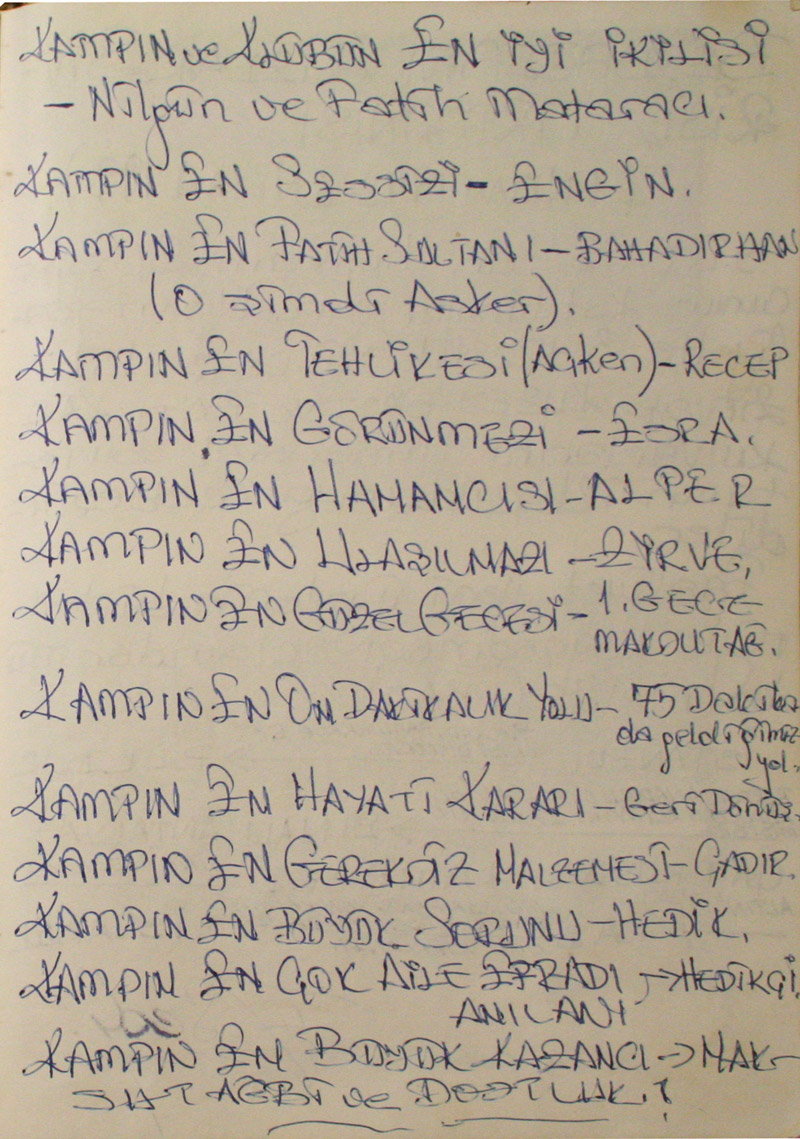 KAMPIN ve KLÜBÜN EN İYİ İKİLİSİ
- Nilgün ve Fatih Mataracı.
KAMPIN EN SESSİZİ - ENGİN.
KAMPIN EN FATİH SULTANI - BAHADIRHAN
(O şimdi Asker).
KAMPIN EN TEHLİKESİ (Açken) - RECEP
KAMPIN EN GÖRÜNMEZİ - ESRA.
KAMPIN EN HAMAMCISI - ALPER
KAMPIN EN ULAŞILMAZI - ZİRVE,
KAMPIN EN GÜZEL GECESİ - 1. GECE
KAMPIN EN ON DAKİKALIK YOLU - 75 Dakika
da geldiğimiz
yol.
KAMPIN EN HAYATİ KARARI - Geri Dönüş.
KAMPIN EN GEREKSİZ MALZEMESİ - ÇADIR.
KAMPIN EN BÜYÜK SORUNU - HEDİK.
KAMPIN EN ÇOK AİLE EFRADI → HEDİKÇİ.
ANILANI
KAMPIN EN BÜYÜK KAZANCI → MAK-
SUT AĞBİ ve DOSTLUK.!